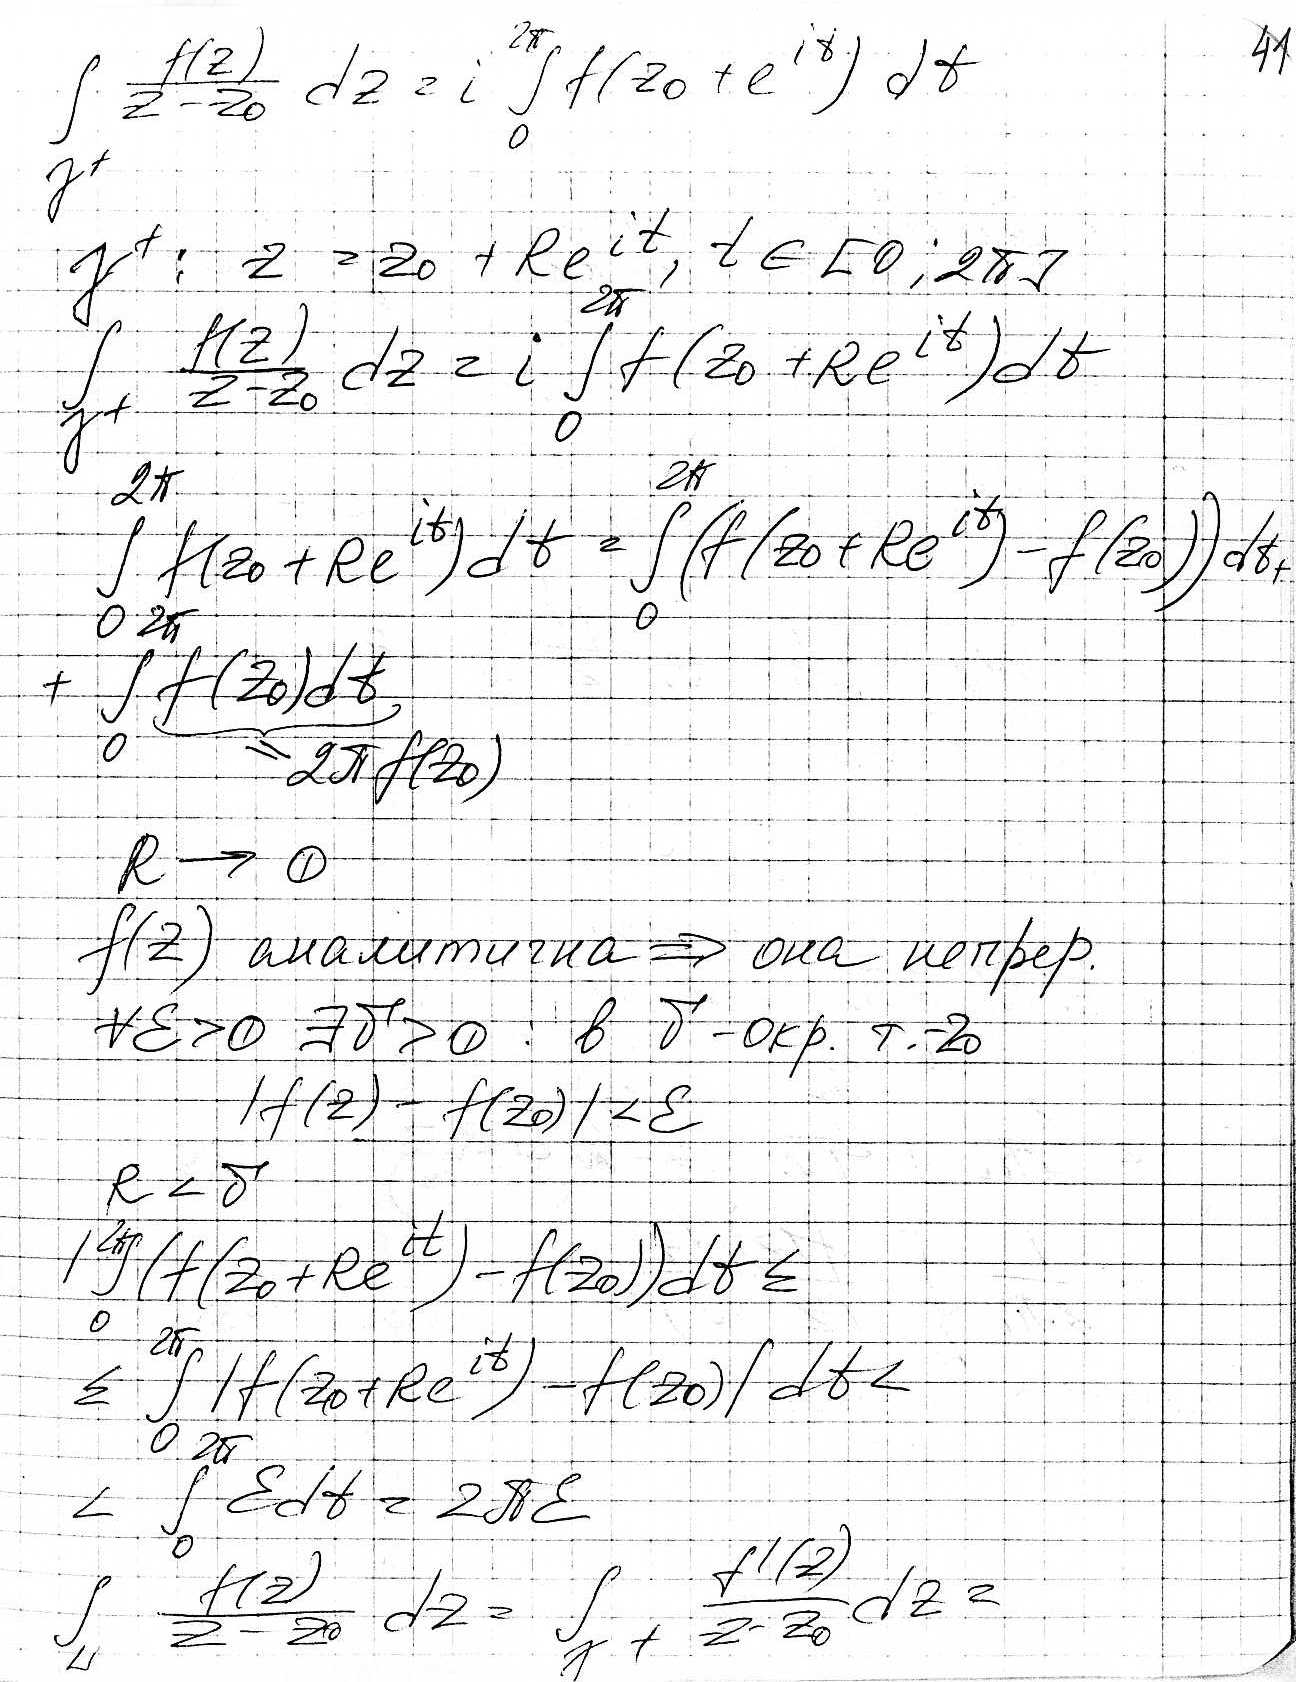 41
∫_{γ^+} f(z)/(z-z_0) dz = i ∫_0^{2π} f(z_0+e^{it}) dt
γ^+: z = z_0 + Re^{it}, t ∈ [0; 2π]
∫_{γ^+} f(z)/(z-z_0) dz = i ∫_0^{2π} f(z_0+Re^{it}) dt
∫_0^{2π} f(z_0+Re^{it}) dt = ∫_0^{2π} (f(z_0+Re^{it}) - f(z_0)) dt +
+ ∫_0^{2π} f(z_0) dt
= 2π f(z_0)
R → 0
f(z) аналитична ⇒ она непрер.
∀ε>0 ∃δ>0 : в δ-окр. т. z_0
|f(z) - f(z_0)| < ε
R < δ
|∫_0^{2π} (f(z_0+Re^{it}) - f(z_0)) dt ≤
≤ ∫_0^{2π} |f(z_0+Re^{it}) - f(z_0)| dt <
< ∫_0^{2π} ε dt = 2πε
∫ f(z)/(z-z_0) dz = ∫_{γ^+} f'(z)/(z-z_0) dz =